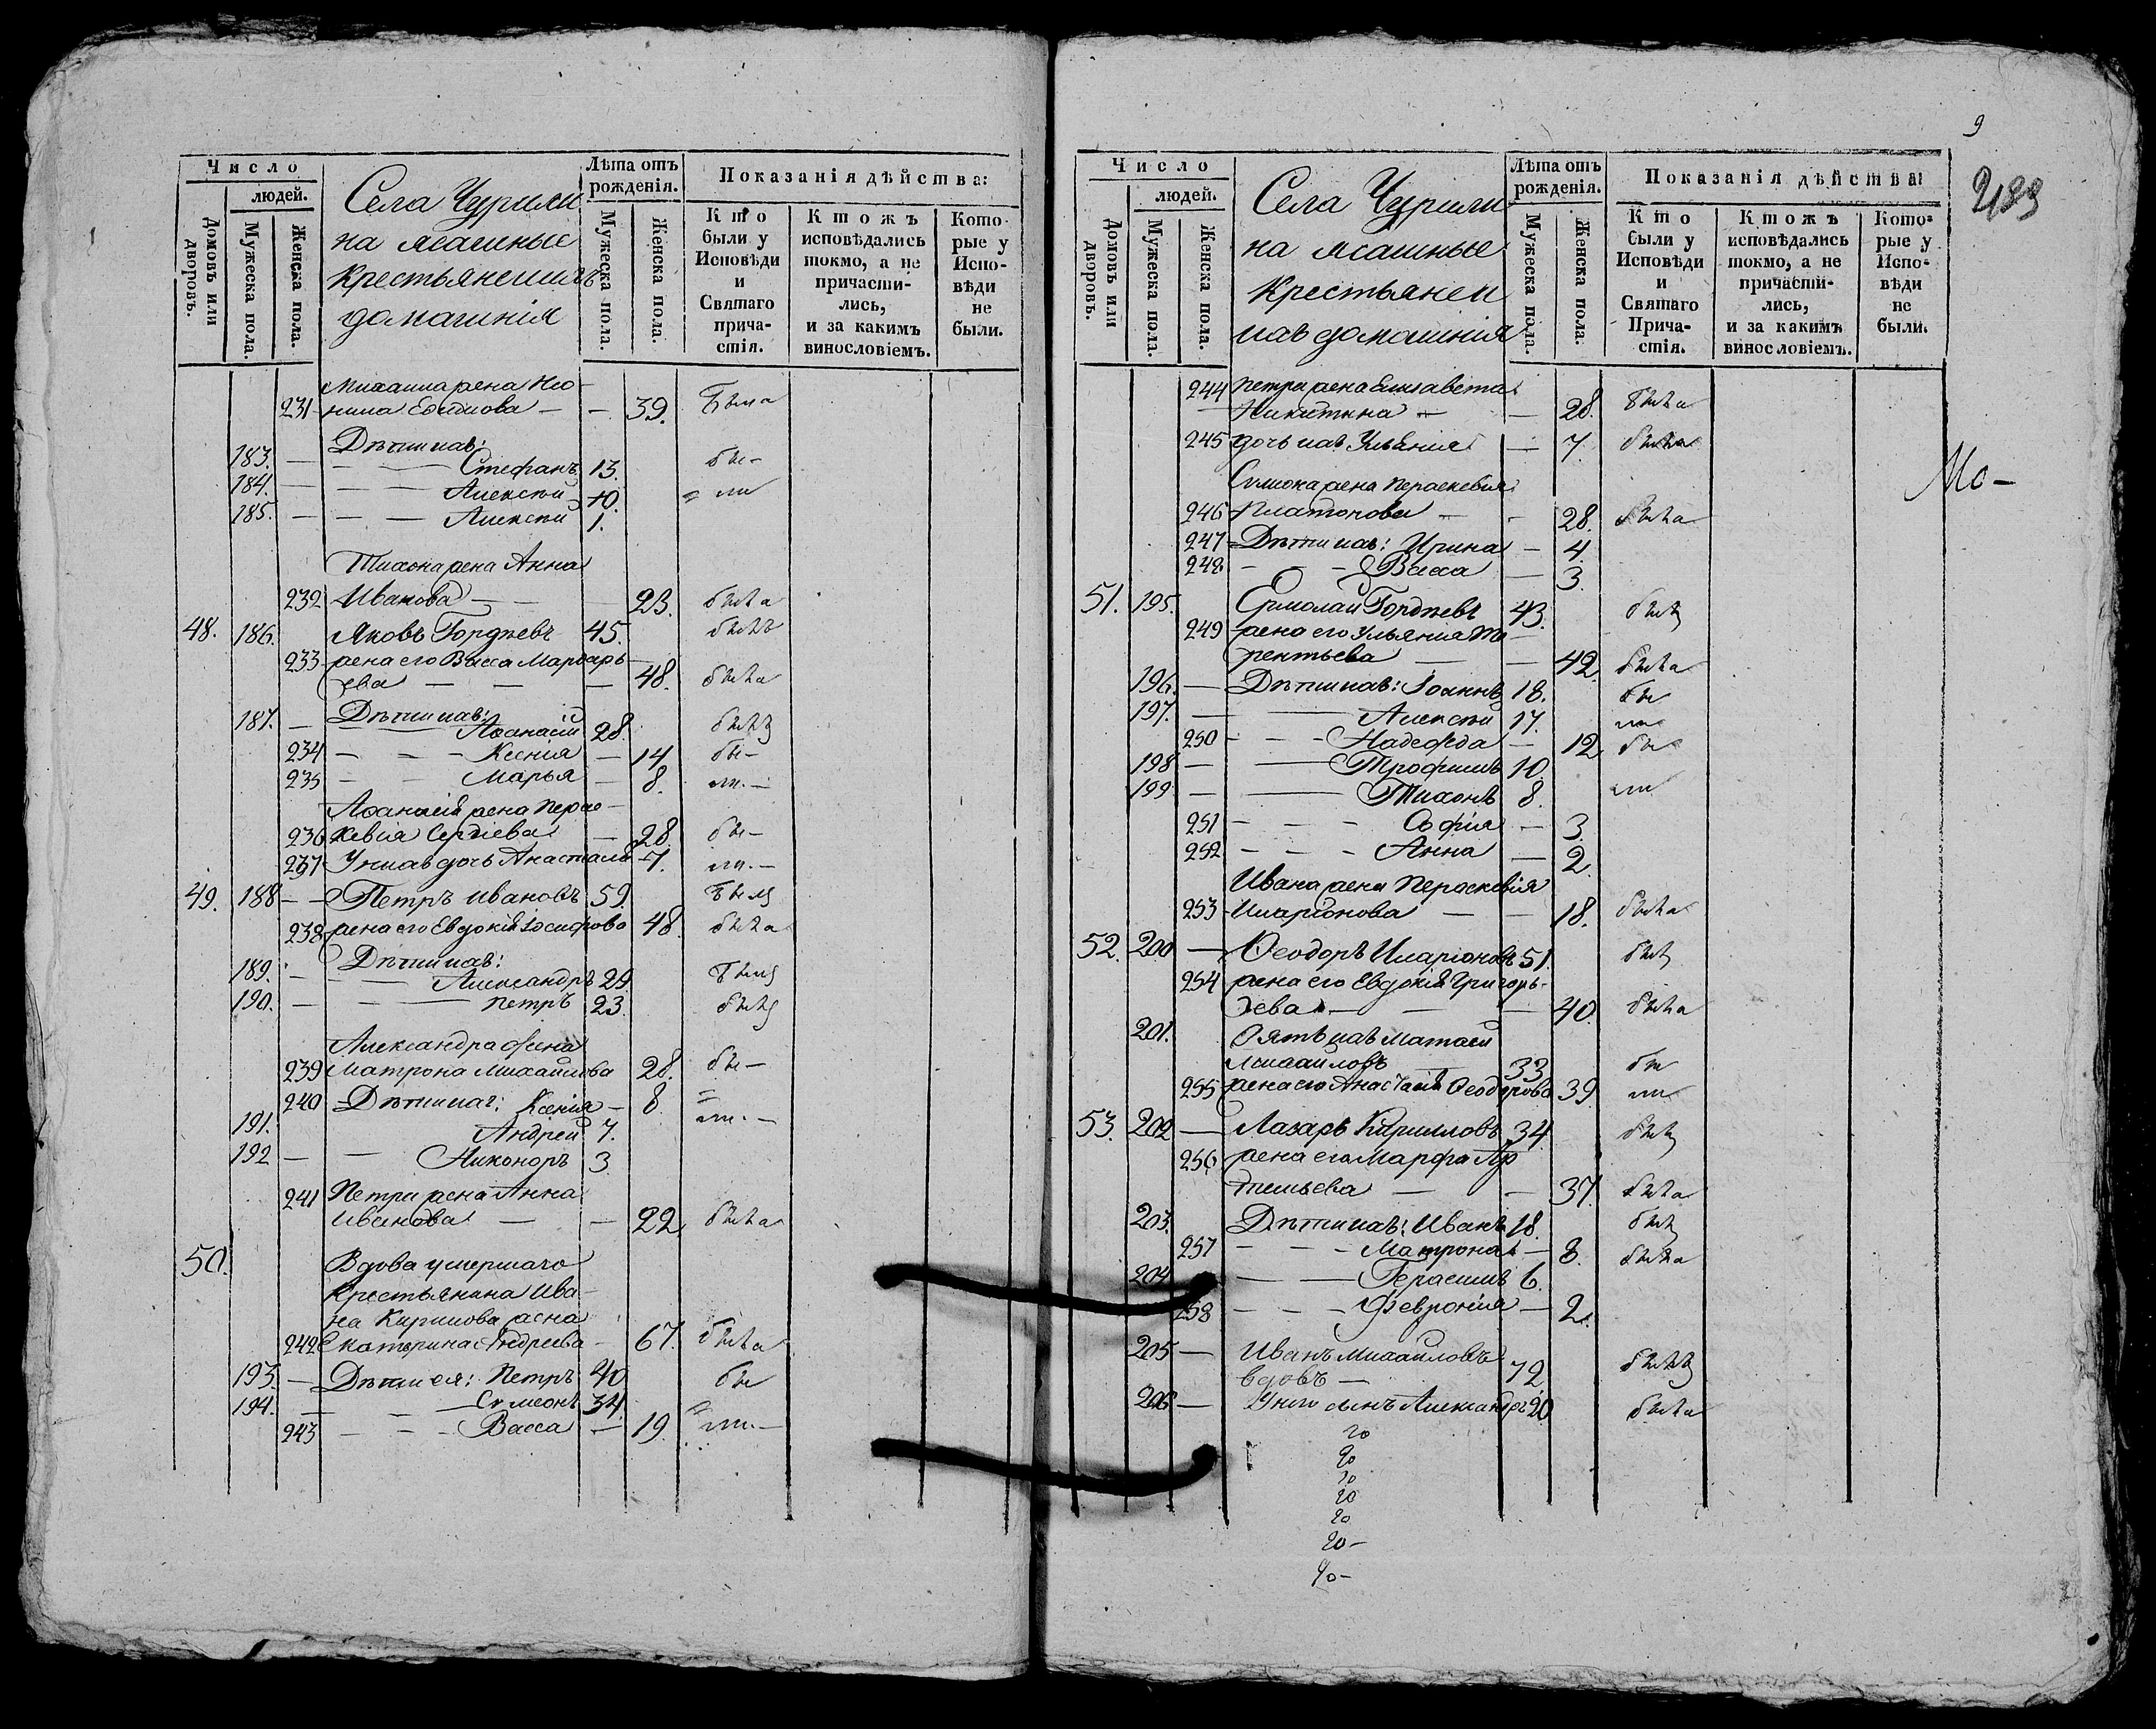 Число
людей.
Домовъ или дворовъ.
Мужеска пола.
Женска пола.
Села Чурили
на ясашные
крестьяне ихъ
домашнія
Лѣта отъ
рожденія.
Мужеска пола.
Женска пола.
Показанія дѣйства:
Кто
были у
Исповѣди
и
Святаго
прича-
стія.
Ктожъ
исповѣдались
токмо, а не
причасти-
лись,
и за какимъ
винословіемъ.
Кото-
рые у
Испо-
вѣди
не
были.
Михаила жена Нео-
231 нила Ефимова — — 39. была
Дѣти ихъ:
183. — Стефанъ 13. бы-
184. — Алексѣй 10.
185. — Алексѣй 1.
Тихона жена Анна
232 Иванова — 23. была
48. 186. Яковъ Гордѣевъ 45. былъ
233 жена его Васса Маркарь-
ева — — — 48. была
Дѣти ихъ:
187. — Аѳанасій 28. былъ
234 — — Ксенія — 14. бы-
235 — — Марья — 8.
Аѳанасія жена Парас-
236 кевія Сергіева — 28. бы-
237 У нихъ дочь Анастасія 7.
49. 188 — Петръ Ивановъ 59. былъ
238 жена его Евдокія Іосифова 48. была
Дѣти ихъ:
189. — Александръ 29. былъ
190. — Петръ 23. былъ
Александра жена
239 Матрона Михайлова 28. бы-
240 Дѣти ихъ: Ксенія — 8.
191. Андрей 7.
192 — Никоноръ 3
241 Петра жена Анна
Иванова — — 22 была
50. Вдова умершаго
крестьянина Ива-
на Кирилова жена
242 Екатерина Андреева — 67. была
193. — Дѣти ея: Петръ 40 бы
194. — Сѵмеонъ 34.
243 — — Васса — 19.
9
2183
Число
людей.
Домовъ или дворовъ.
Мужеска пола.
Женска пола.
Села Чурили
на ясашные
крестьяне и
ихъ домашнія
Лѣта отъ
рожденія.
Мужеска пола.
Женска пола.
Показанія дѣйства:
Кто
были у
Исповѣди
и
Святаго
Прича-
стія.
Ктожъ
исповѣдались
токмо, а не
причасти-
лись,
и за какимъ
винословіемъ.
Кото-
рые у
Испо-
вѣди
не
были.
244 Петра жена Елисавета
Никитина — — 28. была
245 дочь ихъ Ульянія — 7. была
Мо-
Сѵмеона жена Параскевія
246 Платонова — — 28. была
247 Дѣти ихъ: Ирина — 4.
248 — — Васса — 3.
51. 195. Ермолай Гордѣевъ 43. былъ
249 жена его Ульянія Те-
рентьева — — 42 была
196. — Дѣти ихъ: Іоаннъ 18. бы
197. — Алексѣй 17.
250 — — Надежда — 12 бы
198 — Трофимъ 10.
199 — Тихонъ 8.
251 — — Софія — 3.
252 — — Анна — 2.
Ивана жена Параскевія
253 Иларіонова — — 18. была
52. 200 — Ѳеодоръ Иларіоновъ 51. былъ
254 жена его Евдокія Григорь-
ева — — — 40. была
201. Зять ихъ Матѳей
Михайловъ 33 бы
255 жена его Анастасія Ѳеодорова 39.
53. 202 — Лазарь Кирилловъ 34 былъ
256 жена его Марфа Ар
темьева — — 37. была
203. Дѣти ихъ: Иванъ 18. былъ
257 — — Матрона — 8. была
204 — Герасимъ 6.
258 — — Февронія — 2.
205 — Иванъ Михайловъ
вдовъ — 72 былъ
206 — У него сынъ Александръ 20 была
20
20
20
20
20
20-